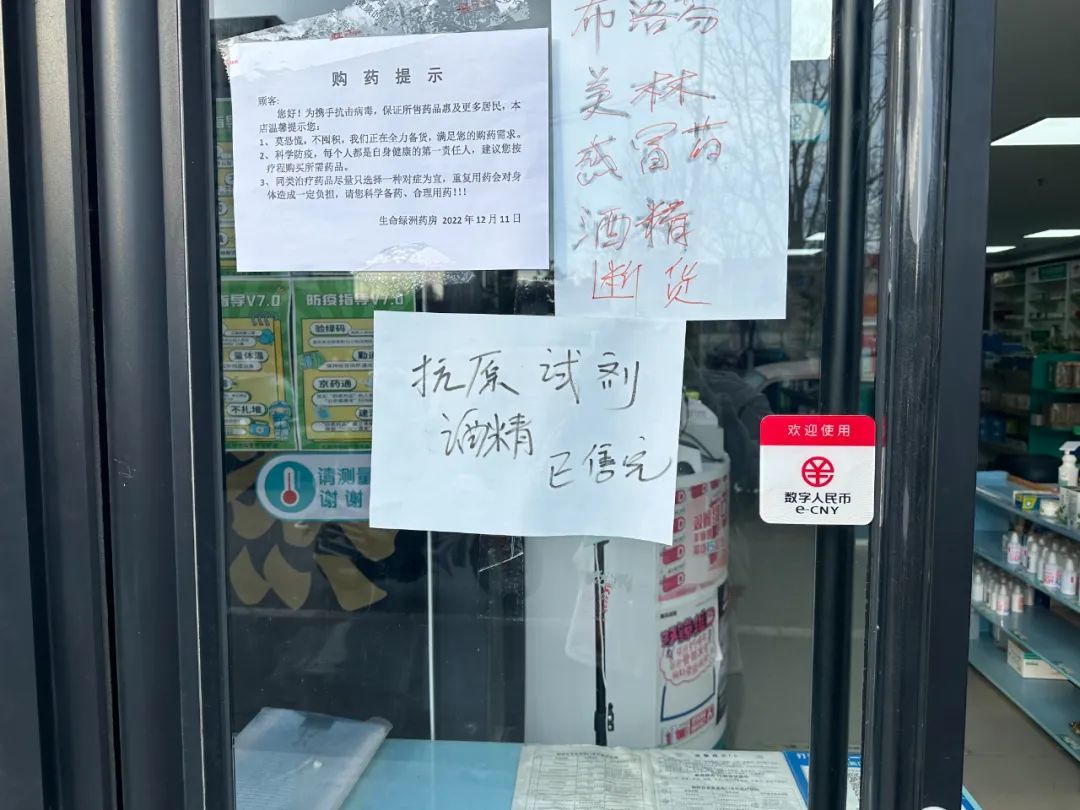 购药提示
顾客:
您好！为携手抗击病毒，保证所售药品惠及更多居民，本
店温馨提示您：
1、莫恐慌，不囤积，我们正在全力备货，满足您的购药需求。
2、科学防疫，每个人都是自身健康的第一责任人，建议您按
疗程购买所需药品。
3、同类治疗药品尽量只选择一种对症为宜，重复用药会对身
体造成一定负担，请您科学备药、合理用药!!!
生命绿洲药房 2022年12月11日
布洛芬
美林
感冒药
酒精
断货
抗原试剂
酒精
已售完
指导V7.0
量体温
不扎堆
防疫指导V7.0
验绿码
京药通
请测量
谢谢
欢迎使用
数字人民币
e-CNY